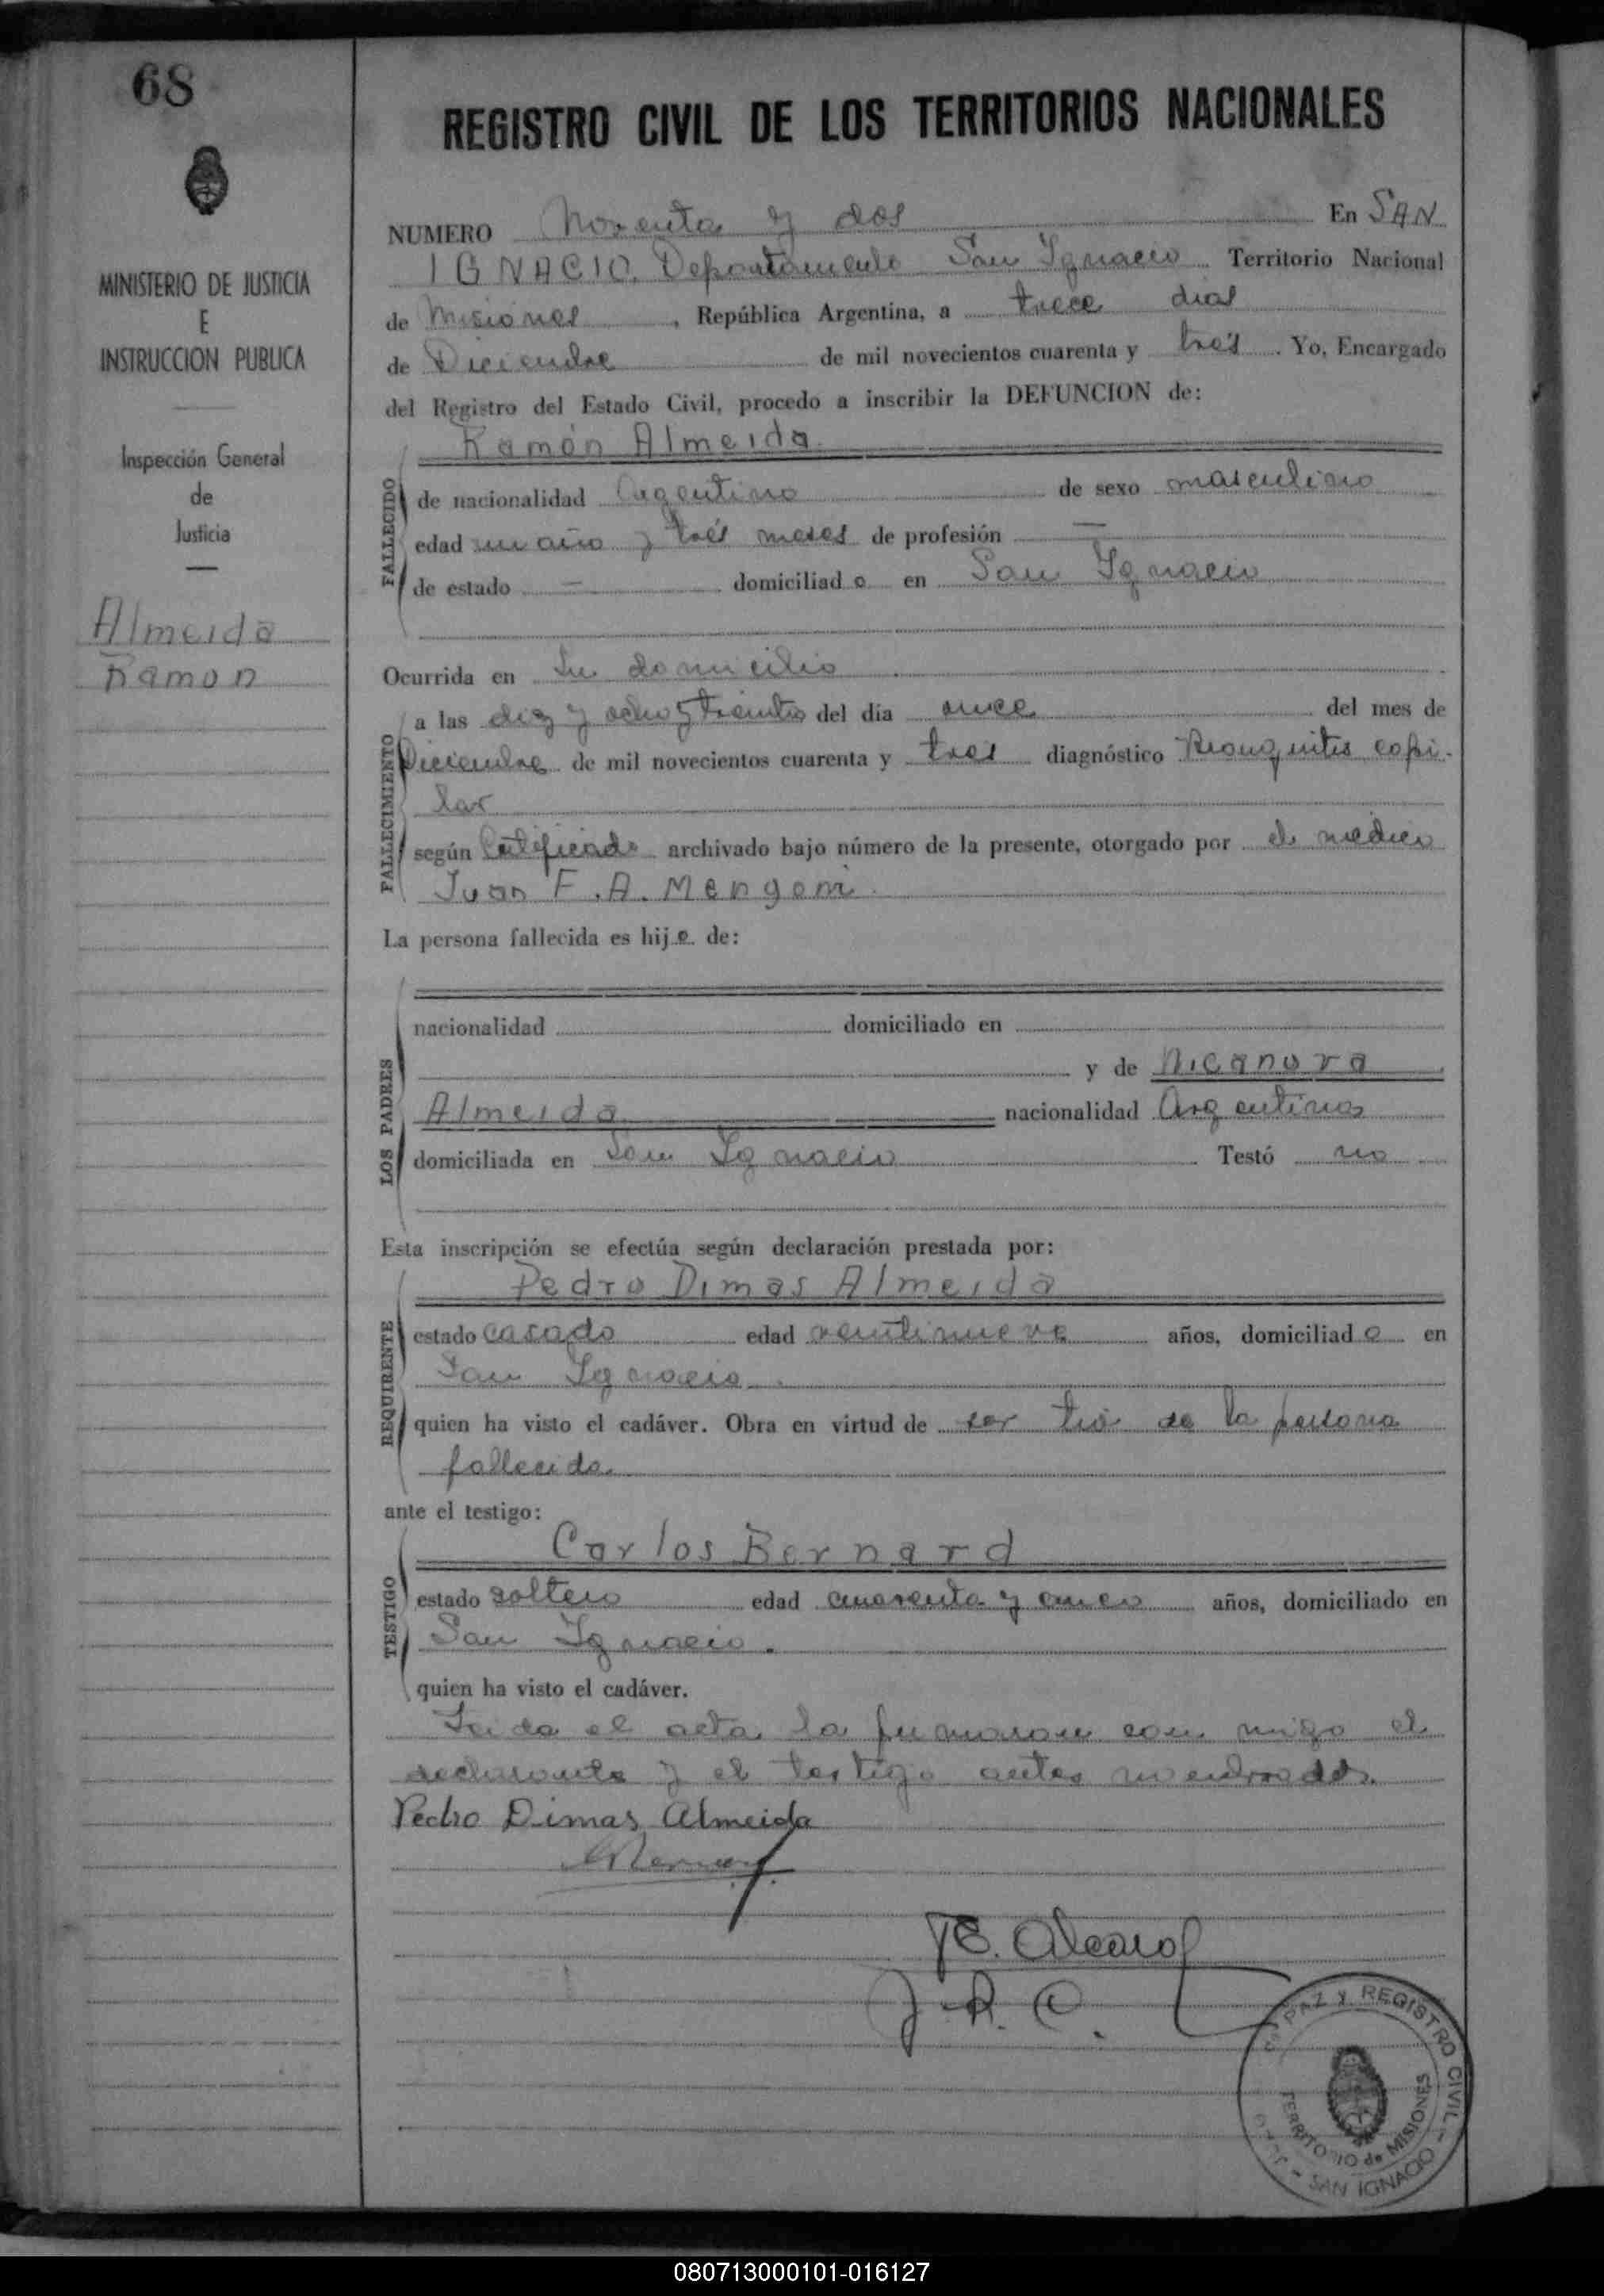 68
MINISTERIO DE JUSTICIA
E
INSTRUCCION PUBLICA
Inspección General
de
Justicia
Almeida
Ramon
REGISTRO CIVIL DE LOS TERRITORIOS NACIONALES
NUMERO Noventa y dos En SAN
IGNACIO. Departamento San Ignacio Territorio Nacional
de Misiones, República Argentina, a trece dias
de Diciembre de mil novecientos cuarenta y tres. Yo, Encargado
del Registro del Estado Civil, procedo a inscribir la DEFUNCION de:
Ramón Almeida.
FALLECIDO
de nacionalidad Argentino de sexo masculino
edad un año y tres meses de profesión —
de estado — domiciliado en San Ignacio
Ocurrida en su domicilio
FALLECIMIENTO
a las diez y ocho y treinta del día once del mes de
Diciembre de mil novecientos cuarenta y tres diagnóstico Bronquitis capi-
lar
según Certificado archivado bajo número de la presente, otorgado por el médico
Juan F. A. Mengoni.
La persona fallecida es hijo de:
LOS PADRES
nacionalidad domiciliado en
y de Nicanora
Almeida nacionalidad Argentina
domiciliada en San Ignacio Testó no
Esta inscripción se efectúa según declaración prestada por:
Pedro Dimas Almeida
REQUIRENTE
estado casado edad veintinueve años, domiciliado en
San Ignacio.
quien ha visto el cadáver. Obra en virtud de ser tio de la persona
fallecida.
ante el testigo:
Carlos Bernard
TESTIGO
estado soltero edad cuarenta y cinco años, domiciliado en
San Ignacio.
quien ha visto el cadáver.
Leida el acta la firmaron con migo el
declarante y el testigo antes nombrados.
Pedro Dimas Almeida
J. R. C.
PAZ Y REGISTRO CIVIL - SAN IGNACIO -
TERRITORIO de MISIONES
080713000101-016127